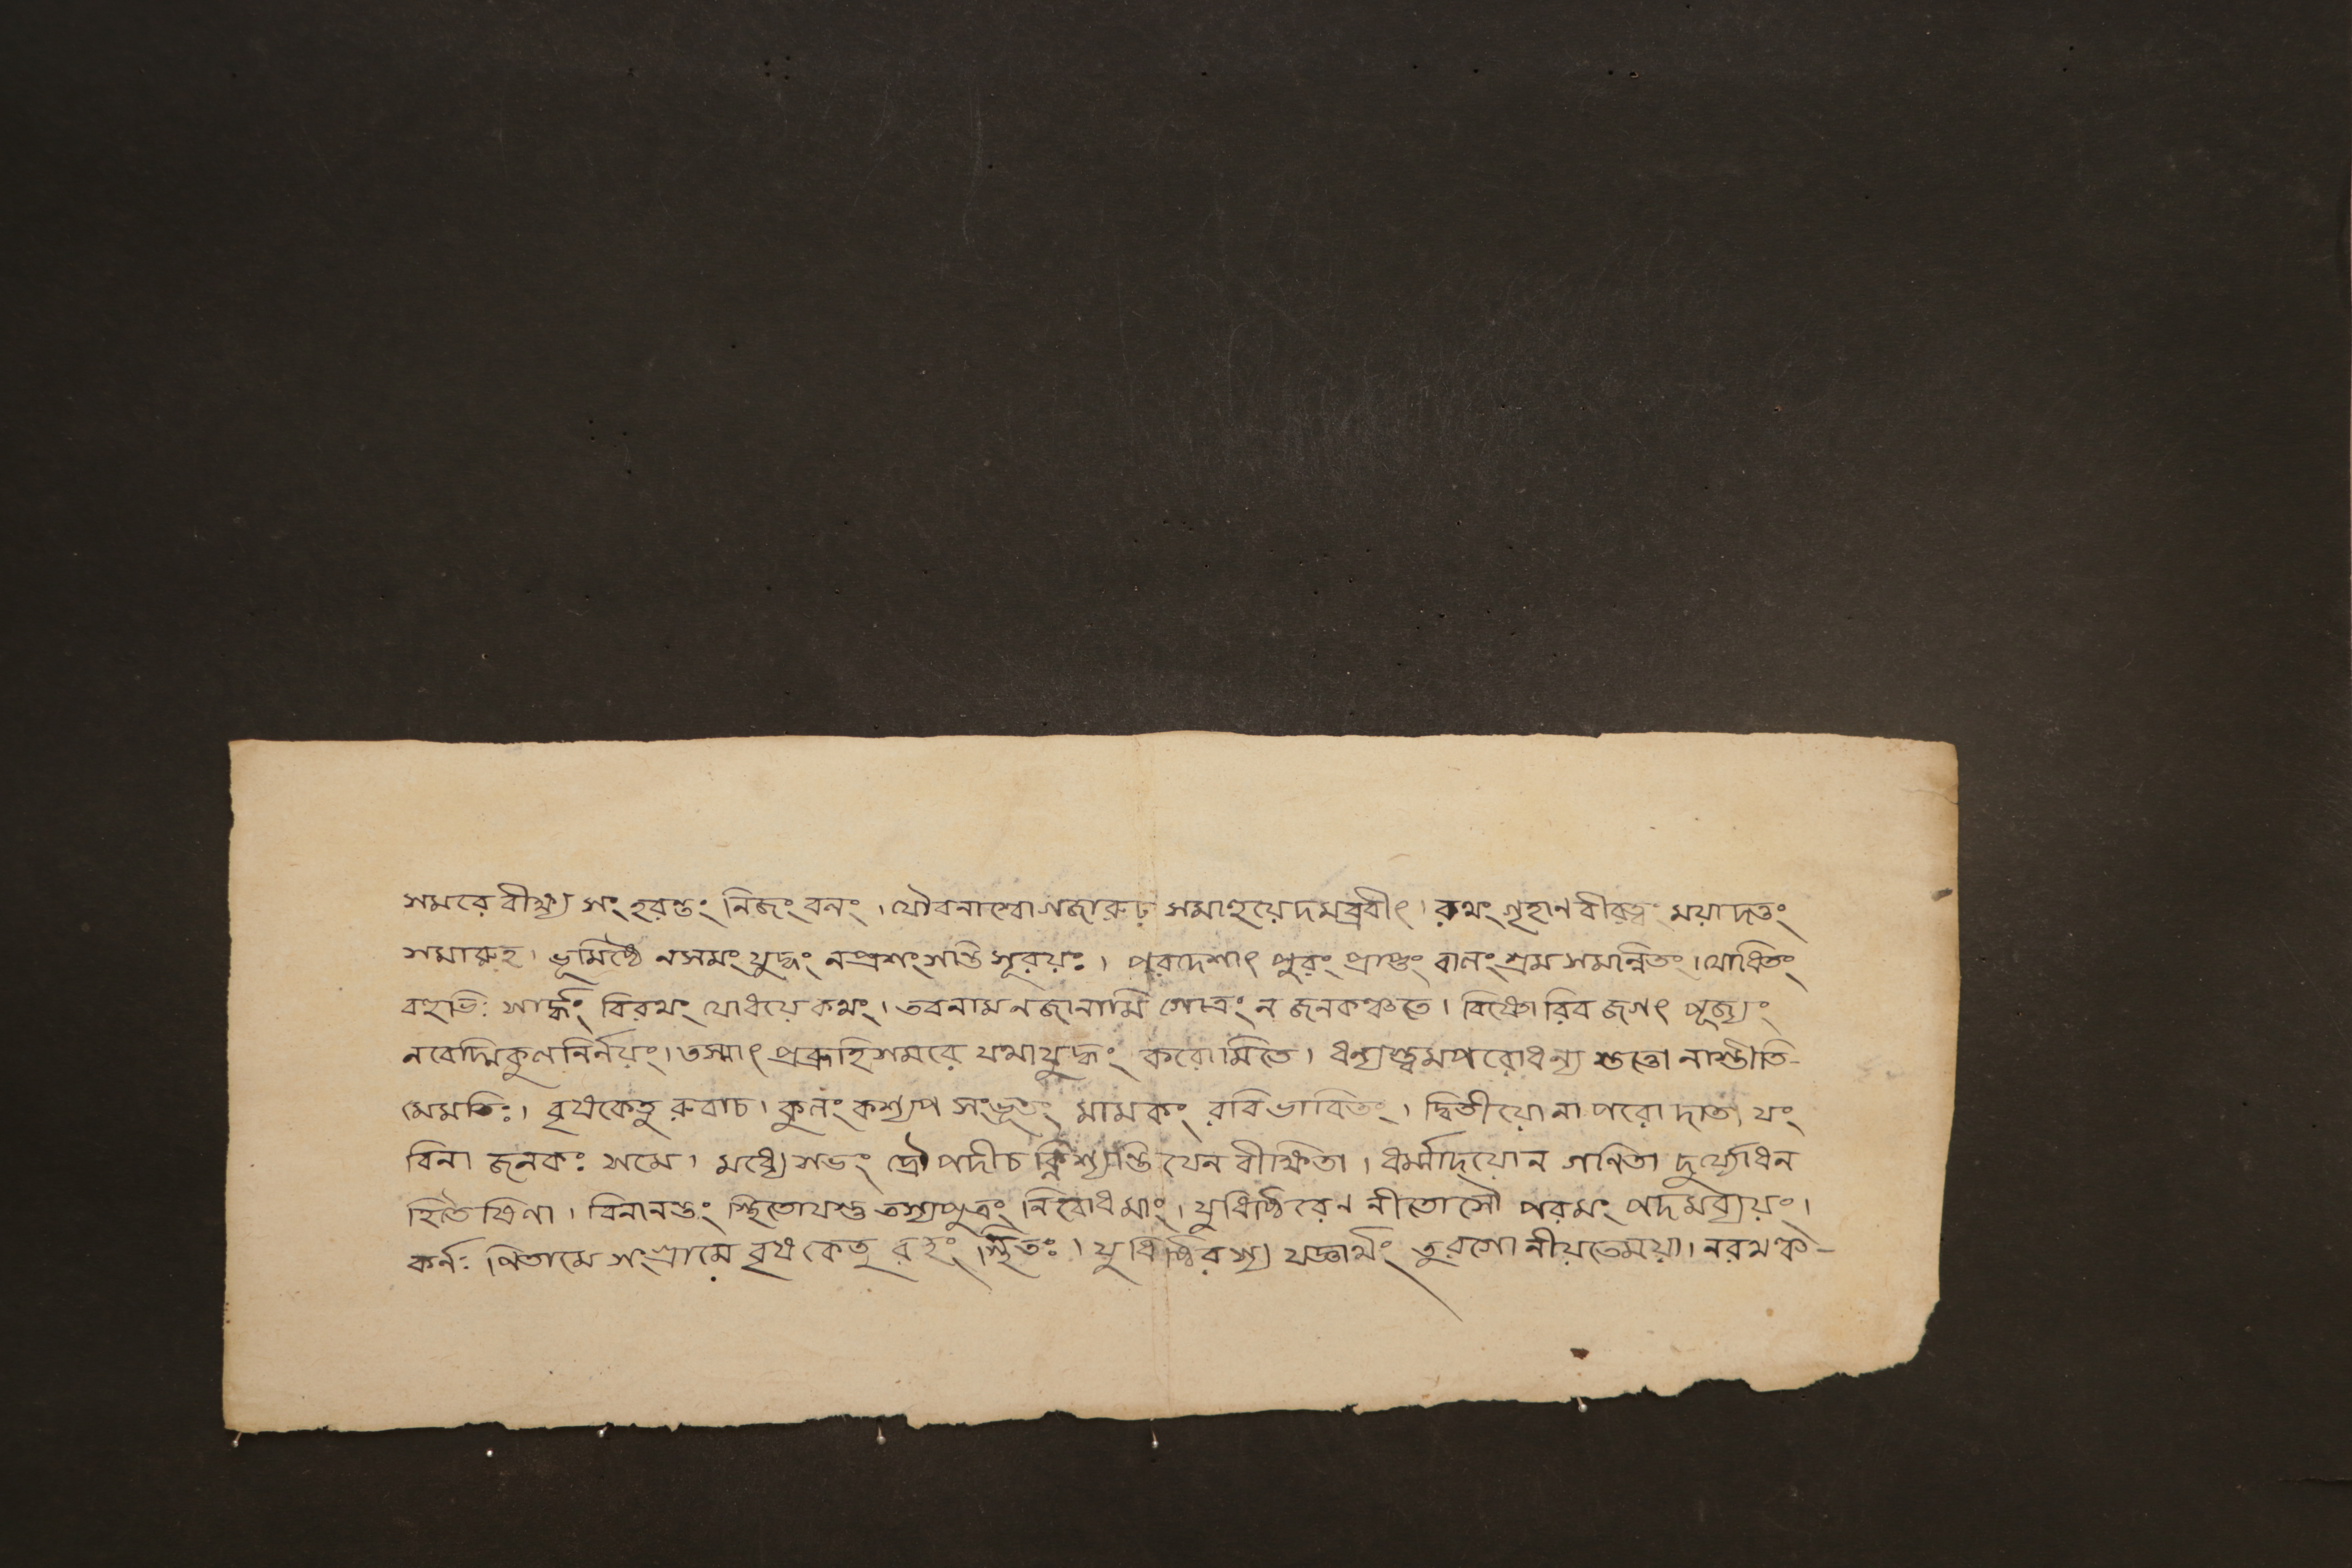 সমরে বীক্ষ্য সংহরন্তং নিজং বলং । যৌবনাশ্বো গজারুঢ় সমাহূয়েদমব্রবীৎ । রথং গৃহাণ বীরত্বং ময়া দত্তং
সমারুহ । ভূমিষ্ঠে ন সমং যুদ্ধং ন প্রশংসন্তি সূরয়ঃ । পরদেশাৎ পুরং প্রাপ্তং বালং শ্রমসমন্নিতং । যোধিতং
বহুভিঃ সার্দ্ধং বিরথং যোধয়ে কথং । তব নাম ন জানামি গোত্রং ন জনকঞ্চতে । বিষ্ণোরিব জগৎ পূজ্যং
ন বেদ্মি কুলনির্নয়ং । তস্মাৎ প্রব্রূহি সমরে যথা যুদ্ধং করোমি তে । ধন্যস্ত্বমপরো ধন্য স্তত্তো নাস্তীতি-
মে মতিঃ । বৃষকেতু রুবাচ । কুলং কশ্যপ সংভূতং মামকং রবি ভাবিতং । দ্বিতীয়ো না পরো দাতা যং
বিনা জনকঃ সমে । মধ্যে সভং দ্রৌপদীচ ক্লিশ্যন্তি যেন বীক্ষিতা । ধর্ম্মাদয়োন গণিতা দুর্য্যোধন
হিতৈষিণা । বিনানস্তং স্থিতো যস্তু তস্য পুত্রং নিবোধ মাং । যুধিষ্ঠিরেণ নীতোসৌ পরমং পদমব্যয়ং ।
কর্নঃ পিতা মে সংগ্রামে বৃষকেতু রহং স্থিতঃ । যুধিষ্ঠিরস্য যজ্ঞার্থং তুরগো নীয়তে ময়া । নরথঞ্চ-